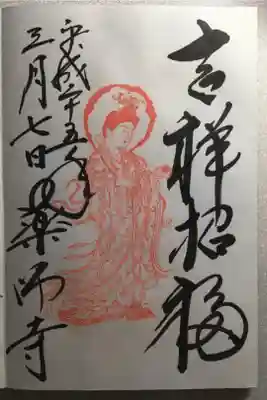 吉祥招福
平成二十五年
三月七日薬師寺